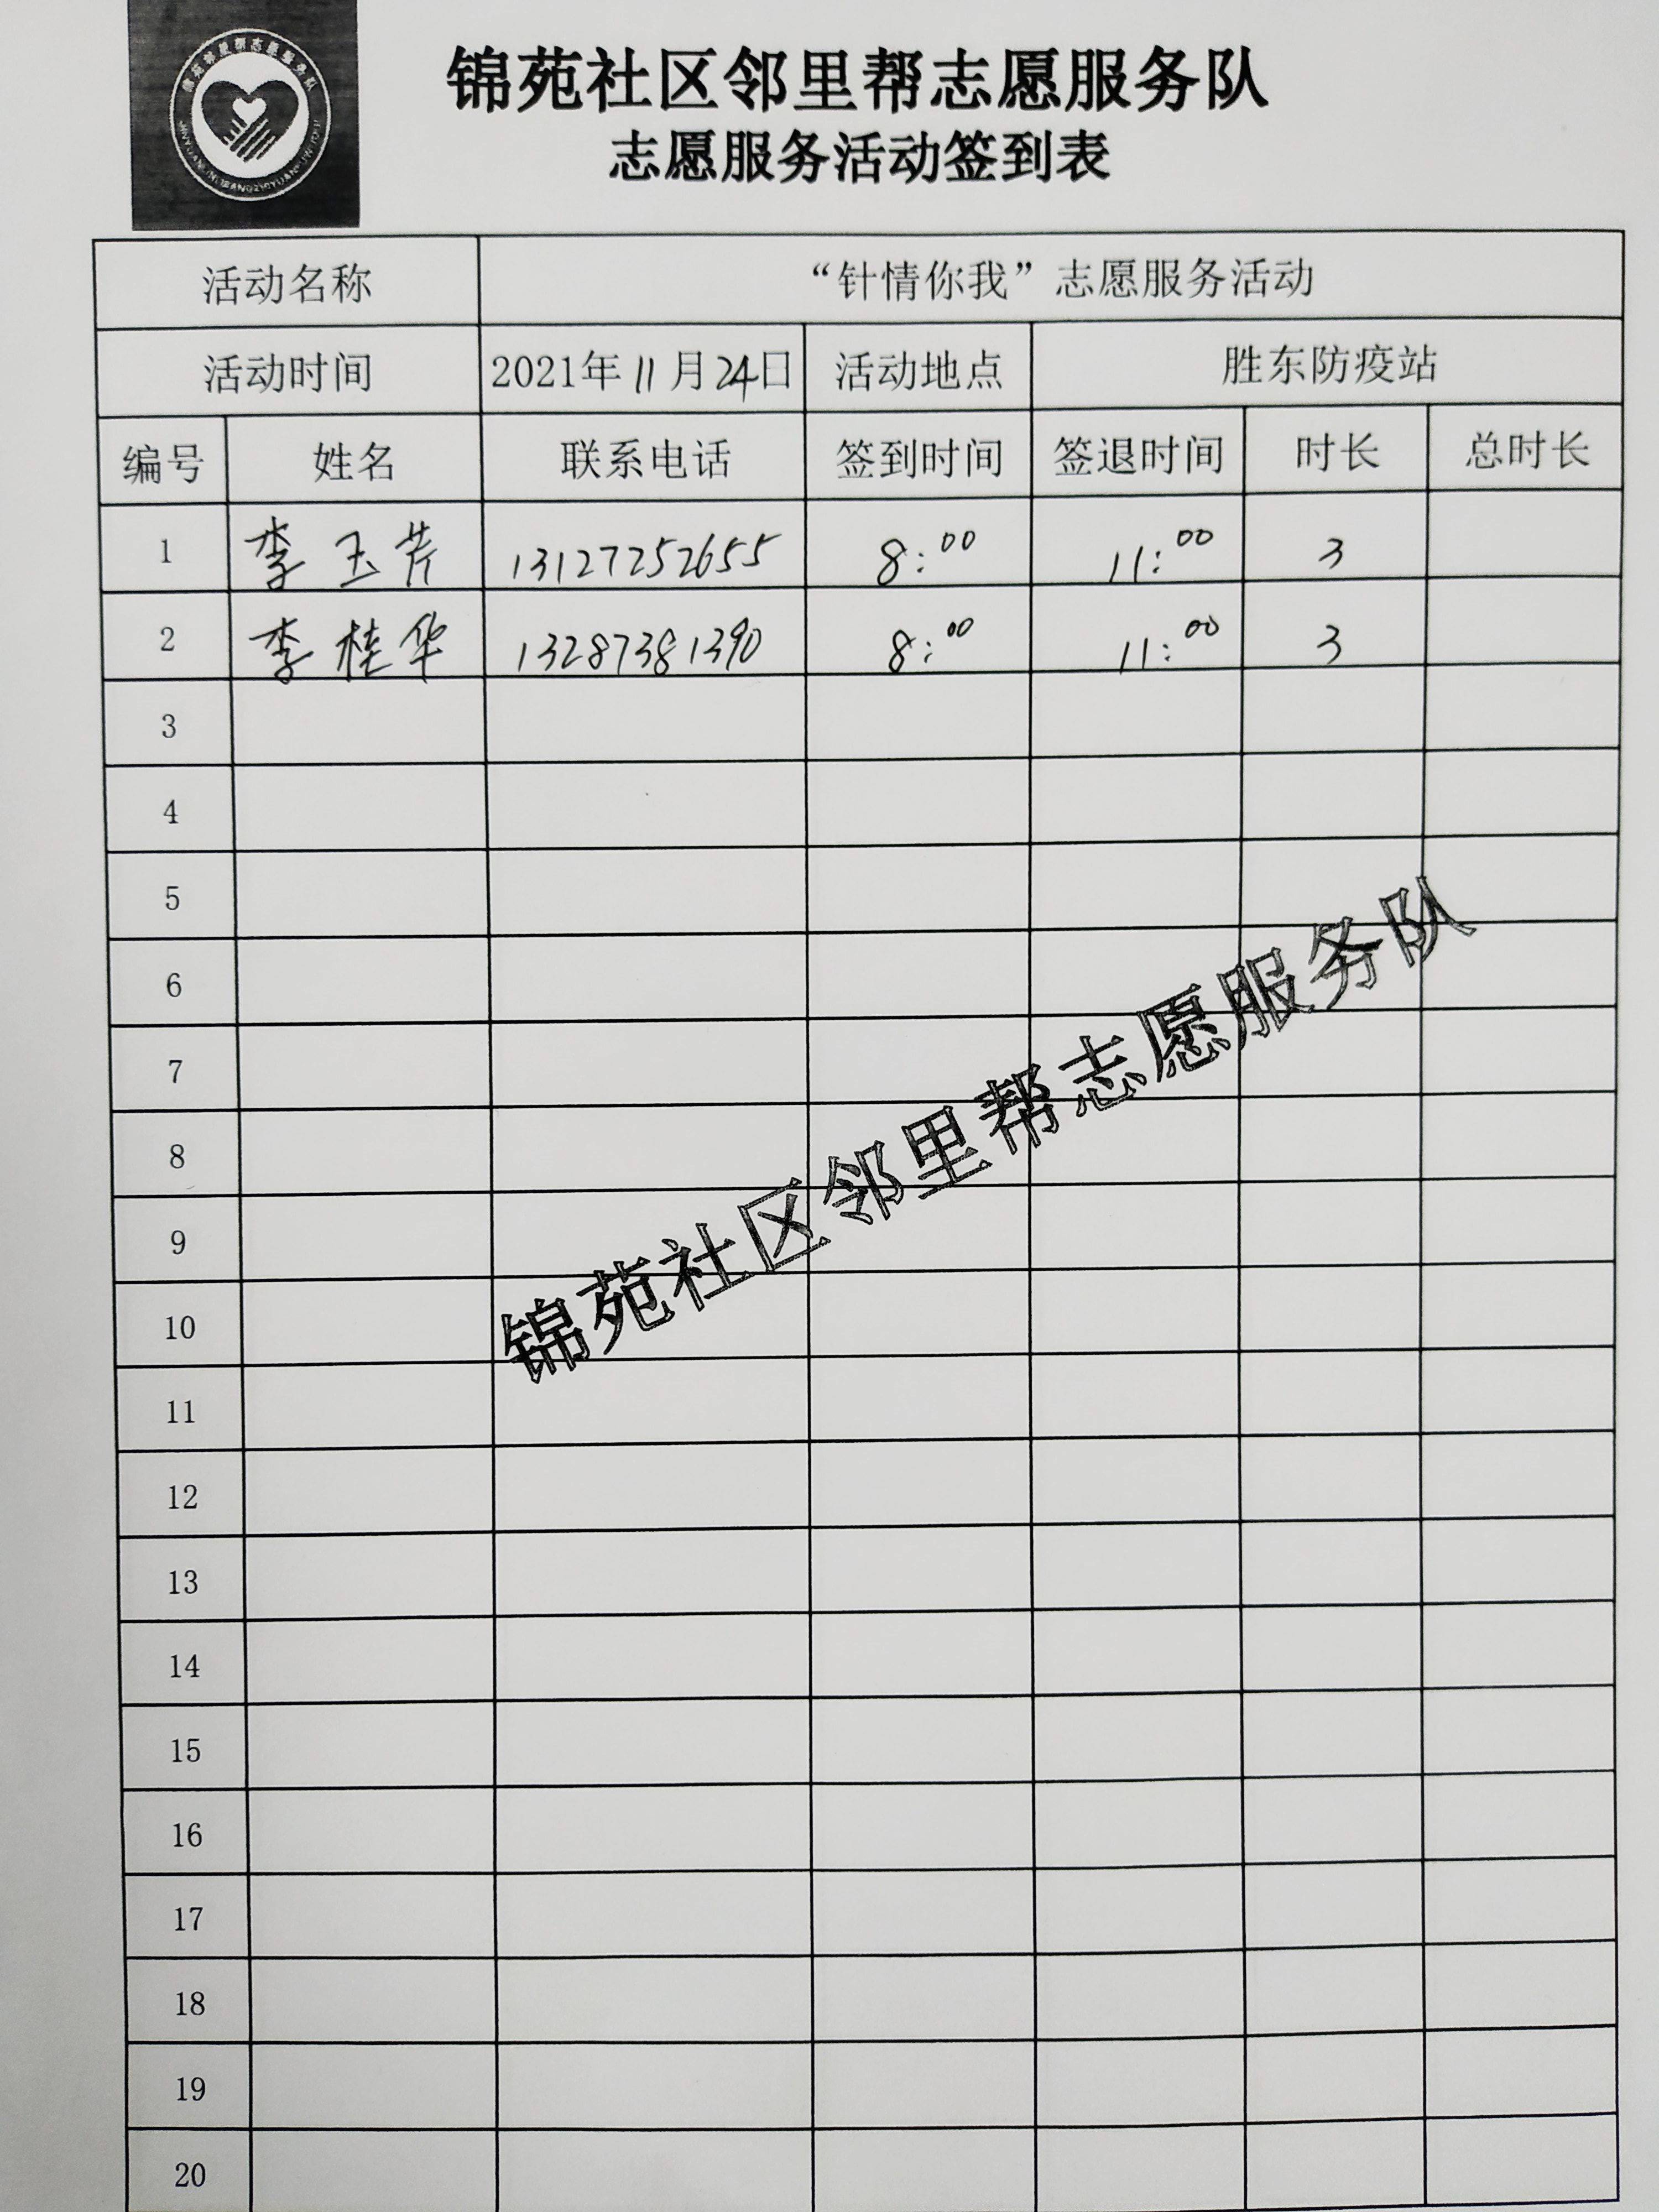 锦苑社区邻里帮志愿服务队
志愿服务活动签到表
活动名称 “针情你我”志愿服务活动
活动时间 2021年11月24日 活动地点 胜东防疫站
编号 姓名 联系电话 签到时间 签退时间 时长 总时长
1 李玉芹 13127252655 8:00 11:00 3
2 李桂华 13287381390 8:00 11:00 3
3
4
5
6
7
8
9
10
11
12
13
14
15
16
17
18
19
20
锦苑社区邻里帮志愿服务队